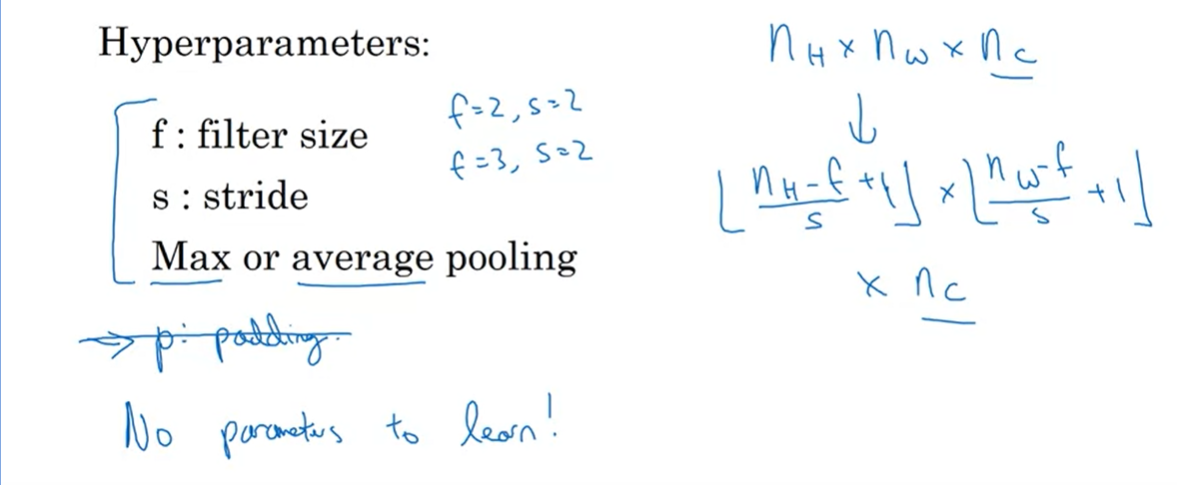 Hyperparameters:
f : filter size
s : stride
Max or average pooling
f=2, s=2
f=3, s=2
→ p: padding.
No parameters to learn!
n_H × n_W × n_C
↓
⌊(n_H - f)/s + 1⌋ × ⌊(n_W - f)/s + 1⌋
× n_C